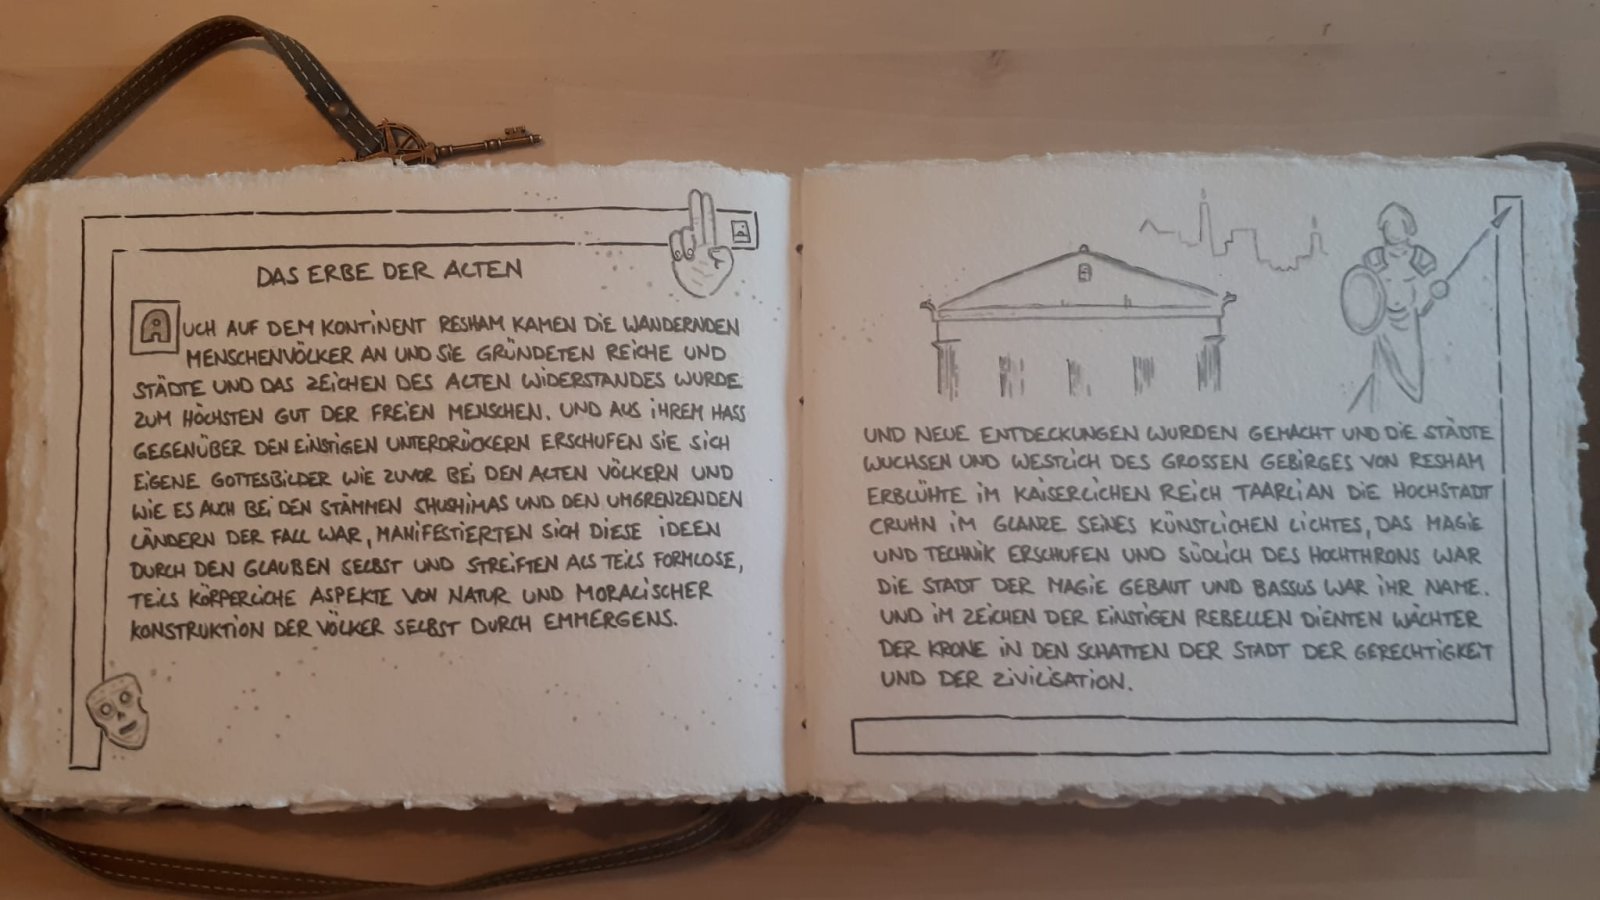 DAS ERBE DER ALTEN
AUCH AUF DEM KONTINENT RESHAM KAMEN DIE WANDERNDEN
MENSCHENVÖLKER AN UND SIE GRÜNDETEN REICHE UND
STÄDTE UND DAS ZEICHEN DES ALTEN WIDERSTANDES WURDE
ZUM HÖCHSTEN GUT DER FREIEN MENSCHEN. UND AUS IHREM HASS
GEGENÜBER DEN EINSTIGEN UNTERDRÜCKERN ERSCHUFEN SIE SICH
EIGENE GOTTESBILDER WIE ZUVOR BEI DEN ALTEN VÖLKERN UND
WIE ES AUCH BEI DEN STÄMMEN SHUSHIMAS UND DEN UMGRENZENDEN
LÄNDERN DER FALL WAR, MANIFESTIERTEN SICH DIESE IDEEN
DURCH DEN GLAUBEN SELBST UND STREIFTEN ALS TEILS FORMLOSE,
TEILS KÖRPERLICHE ASPEKTE VON NATUR UND MORALISCHER
KONSTRUKTION DER VÖLKER SELBST DURCH EMMERGENS.
UND NEUE ENTDECKUNGEN WURDEN GEMACHT UND DIE STÄDTE
WUCHSEN UND WESTLICH DES GROSSEN GEBIRGES VON RESHAM
ERBLÜHTE IM KAISERLICHEN REICH TAARLIAN DIE HOCHSTADT
CRUHN IM GLANZE SEINES KÜNSTLICHEN LICHTES, DAS MAGIE
UND TECHNIK ERSCHUFEN UND SÜDLICH DES HOCHTHRONS WAR
DIE STADT DER MAGIE GEBAUT UND BASSUS WAR IHR NAME.
UND IM ZEICHEN DER EINSTIGEN REBELLEN DIENTEN WÄCHTER
DER KRONE IN DEN SCHATTEN DER STADT DER GERECHTIGKEIT
UND DER ZIVILISATION.